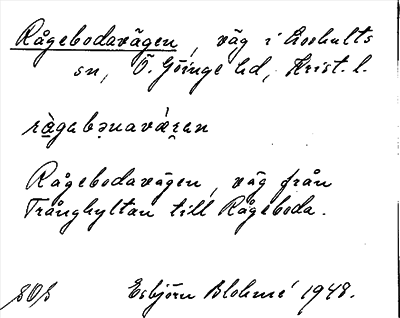 Rågebodavägen, väg i Loshults
sn, Ö. Göinge hd, Krist. l.
rågabǝnavä́ran
Rågebodavägen, väg från
Trånghyltan till Rågeboda.
Esbjörn Blohmé 1948.